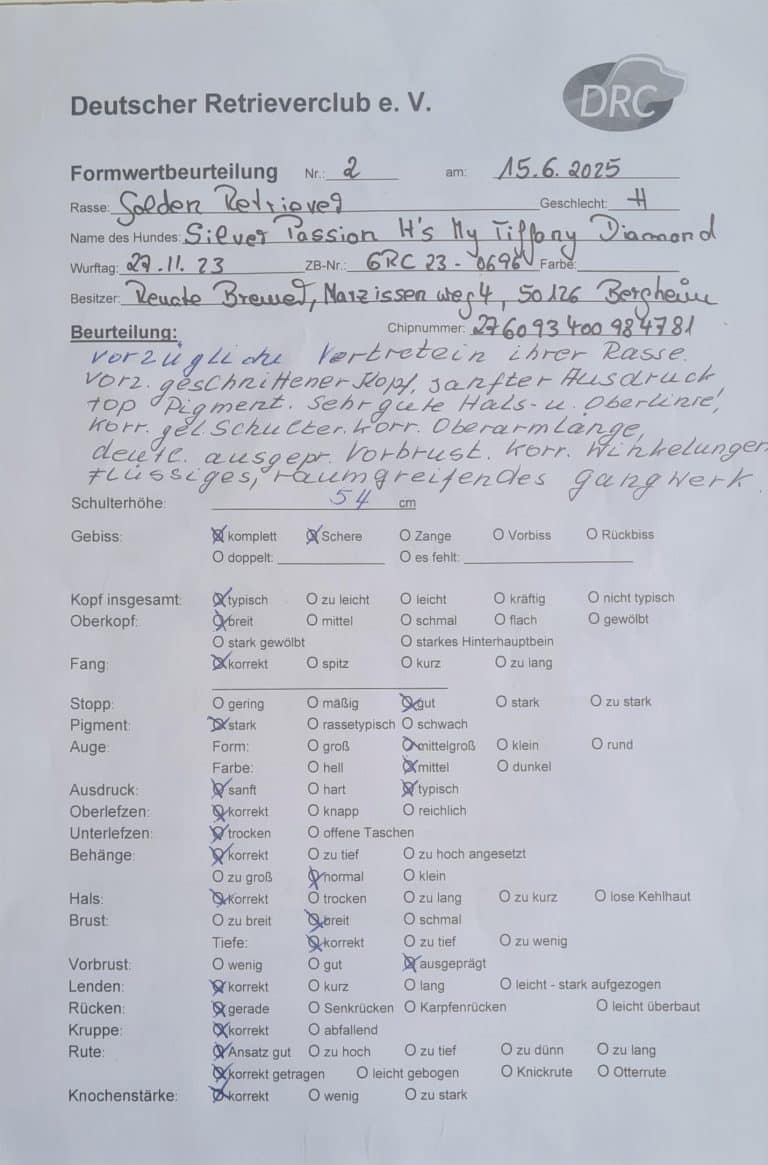 Deutscher Retrieverclub e. V.
DRC
Formwertbeurteilung Nr.: 2 am: 15.6.2025
Rasse: Golden Retriever Geschlecht: H
Name des Hundes: Silver Passion H's My Tiffany Diamond
Wurftag: 27.11.23 ZB-Nr.: GRC 23 - 0696 Farbe:
Besitzer: Renate Bremer, Narzissenweg 4, 50126 Bergheim
Beurteilung: Chipnummer: 276093400984781
Vorzügliche Vertreterin ihrer Rasse.
Vorz. geschnittener Kopf, sanfter Ausdruck,
top Pigment. Sehr gute Hals- u. Oberlinie,
Korr. gel. Schulter. korr. Oberarmlänge,
deutl. ausgepr. Vorbrust. korr. Winkelungen
Flüssiges, raumgreifendes Gangwerk.
Schulterhöhe: 54 cm
Gebiss: O komplett O Schere O Zange O Vorbiss O Rückbiss
O doppelt: O es fehlt:
Kopf insgesamt: O typisch O zu leicht O leicht O kräftig O nicht typisch
Oberkopf: O breit O mittel O schmal O flach O gewölbt
O stark gewölbt O starkes Hinterhauptbein
Fang: O korrekt O spitz O kurz O zu lang
Stopp: O gering O mäßig O gut O stark O zu stark
Pigment: O stark O rassetypisch O schwach
Auge: Form: O groß O mittelgroß O klein O rund
Farbe: O hell O mittel O dunkel
Ausdruck: O sanft O hart O typisch
Oberlefzen: O korrekt O knapp O reichlich
Unterlefzen: O trocken O offene Taschen
Behänge: O korrekt O zu tief O zu hoch angesetzt
O zu groß O normal O klein
Hals: O korrekt O trocken O zu lang O zu kurz O lose Kehlhaut
Brust: O zu breit O breit O schmal
Tiefe: O korrekt O zu tief O zu wenig
Vorbrust: O wenig O gut O ausgeprägt
Lenden: O korrekt O kurz O lang O leicht - stark aufgezogen
Rücken: O gerade O Senkrücken O Karpfenrücken O leicht überbaut
Kruppe: O korrekt O abfallend
Rute: O Ansatz gut O zu hoch O zu tief O zu dünn O zu lang
O korrekt getragen O leicht gebogen O Knickrute O Otterrute
Knochenstärke: O korrekt O wenig O zu stark